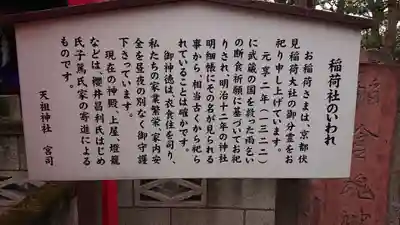 稲荷社のいわれ
お稲荷さまは、京都伏
見稲荷大社の御分霊をお
祀り申し上げています。
元亨二年（一三二二）
に武蔵の国を救った雨乞い
の断食祈願に基づいてお祀
りされ、明治十二年の神社
明細帳にその名が見られる
事から、相当古くから祀ら
れていることは確かです。
御神徳は、衣食住を司り、
私たちの家業繁栄、家内安
全を昼夜の別なく御守護
下さっています。
現在の神殿、上屋、燈籠
などは、櫻井昌利氏はじめ
氏子篤氏家の寄進による
ものです。
天祖神社 宮司